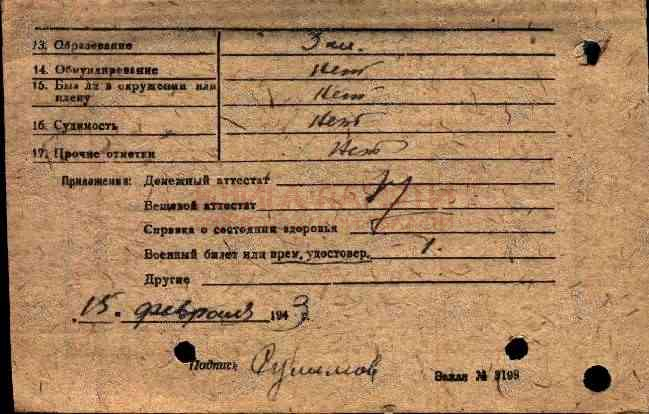 13. Образование 3 кл.
14. Обмундирование Нет
15. Был ли в окружении или плену Нет
16. Судимость Нет
17. Прочие отметки Нет
Приложения: Денежный аттестат
Вещевой аттестат
Справка о состоянии здоровья
Военный билет или врем. удостовер. 1.
Другие
15. февраля 1943 г.
Подпись Сулимов
Заказ № 3199